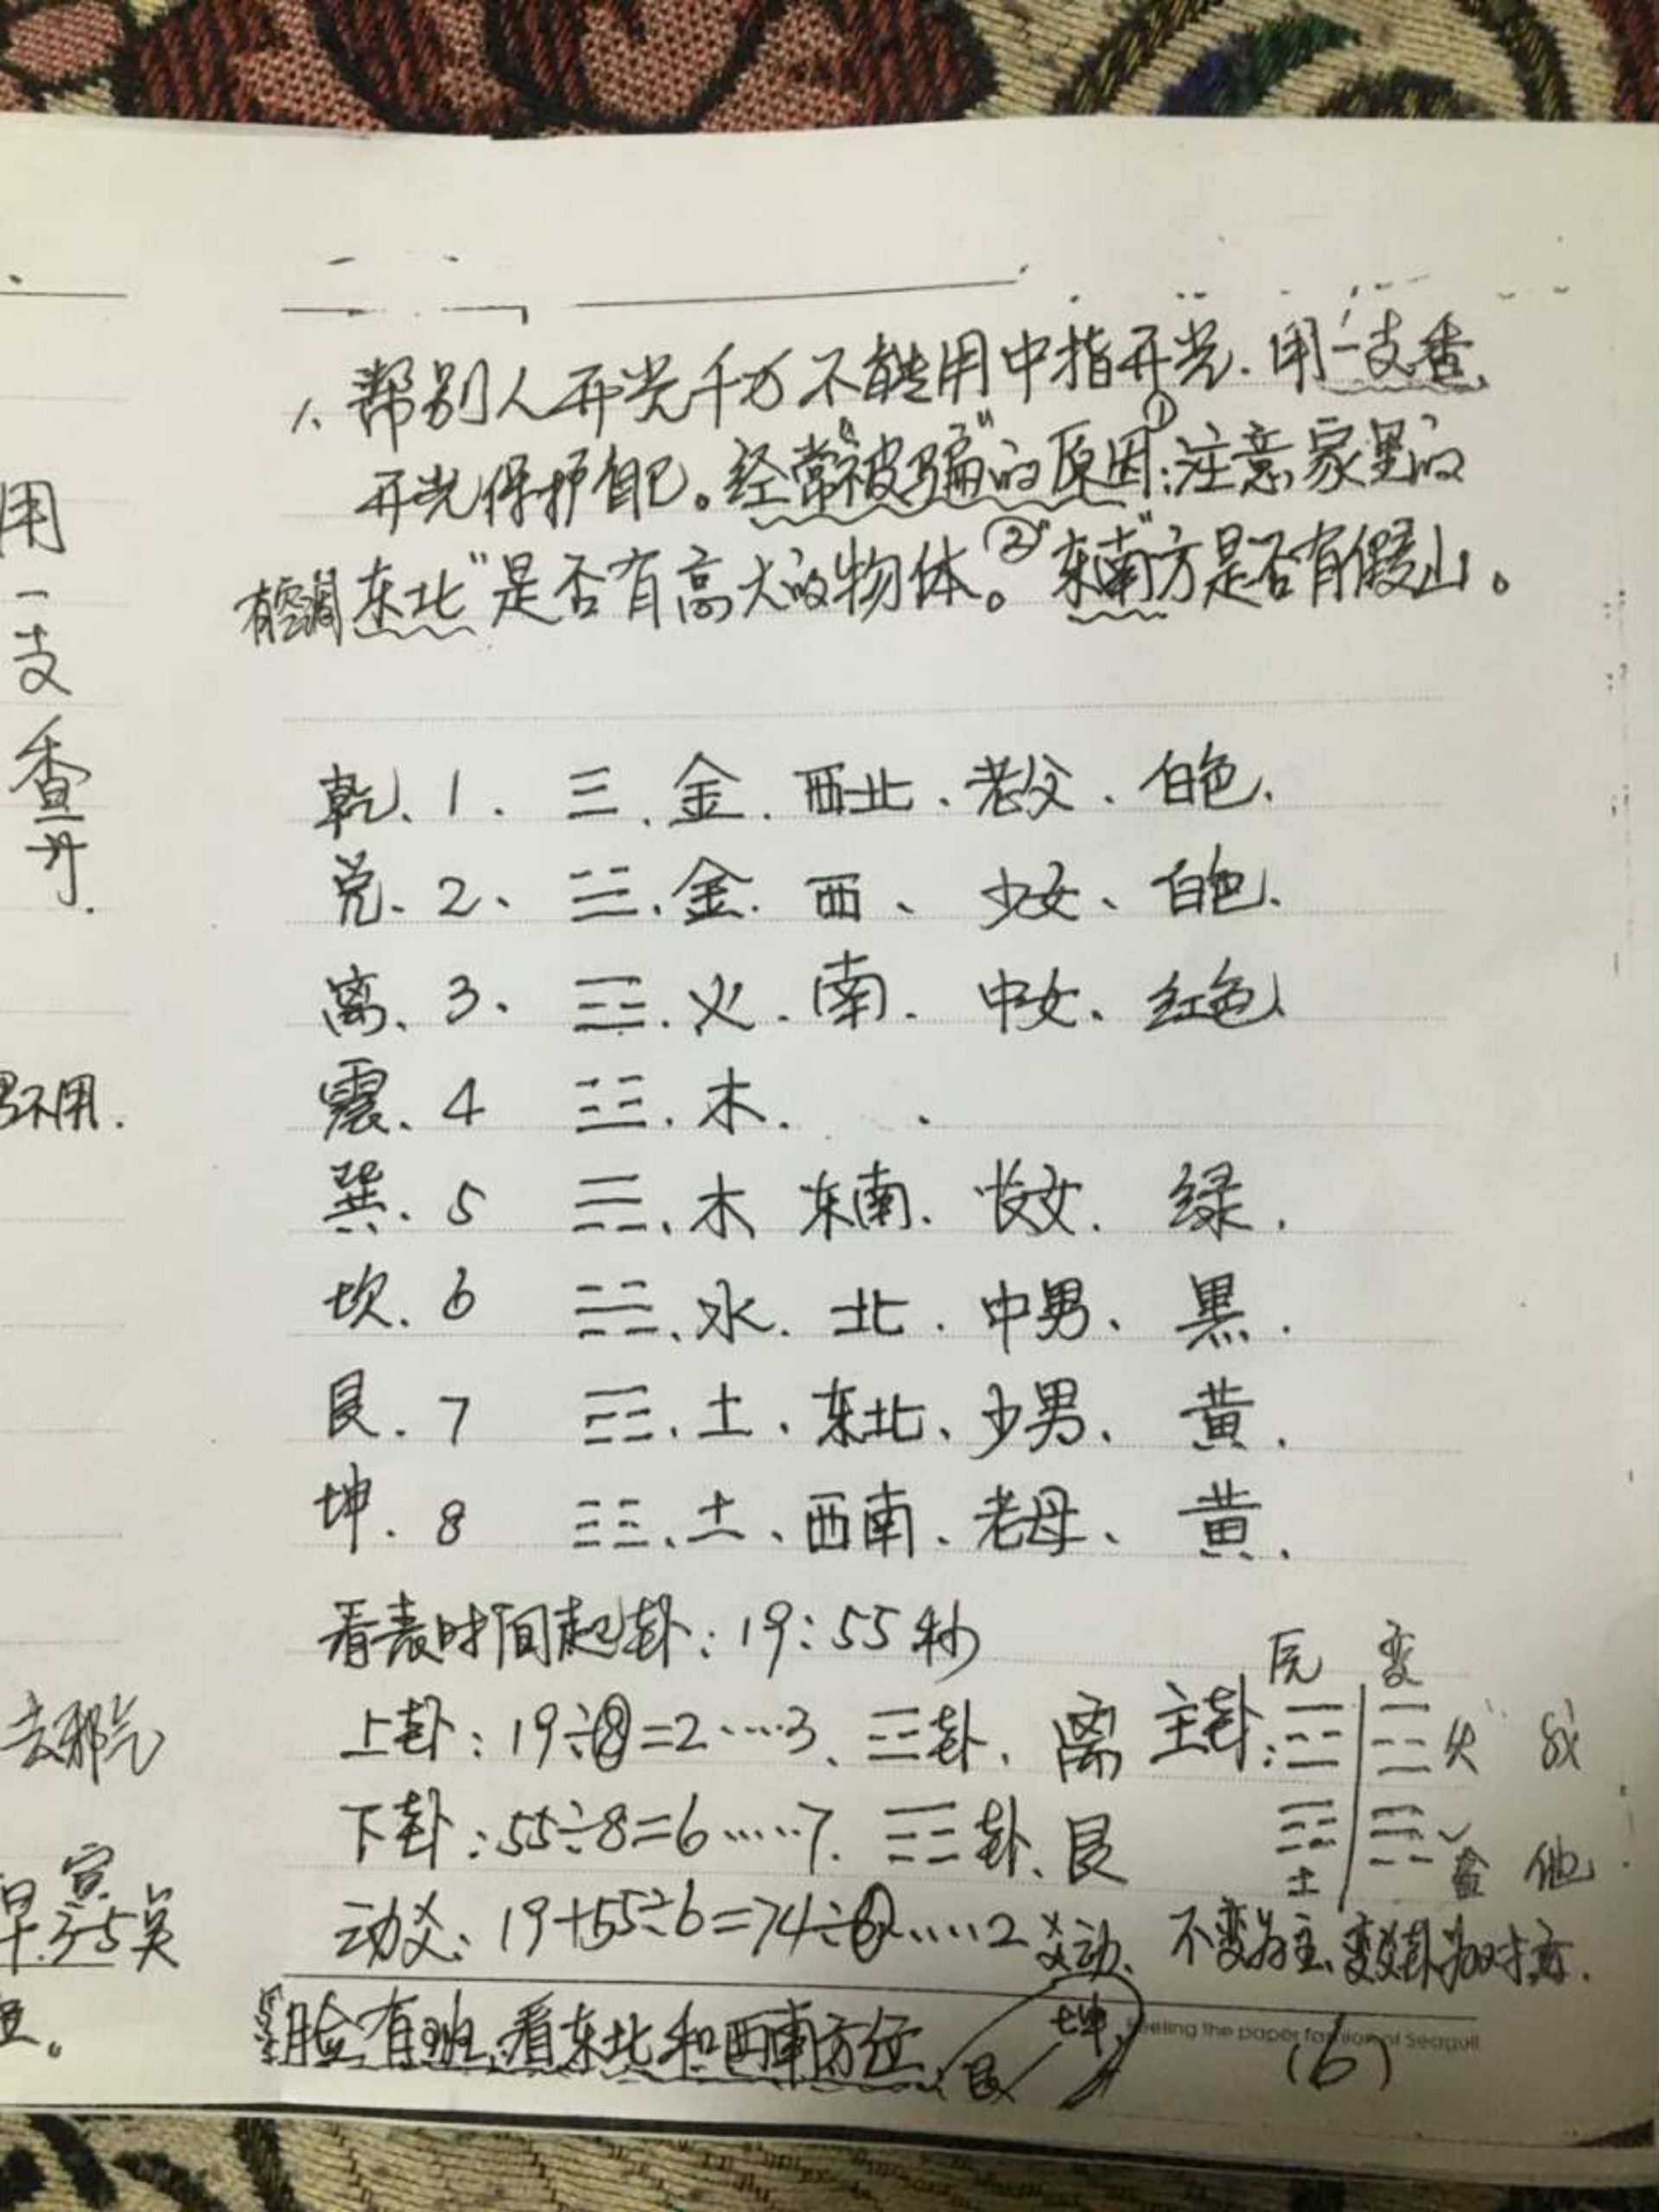 用
一
支
香
开.
不用.
去邪气
1、帮别人开光千万不能用中指开光.用一支香
开光保护自己。经常“被骗”的原因:①注意家里的
有空调 东北”是否有高大的物体。②“东南”方是否有假山。
乾、1. ☰.金.西北、老父、白色.
兑、2、☱.金.西、少女、白色.
离、3、☲.火.南.中女、红色.
震、4 ☳.木.
巽.5 ☴、木 东南.长女.绿.
坎.6 ☵、水.北.中男、黑.
艮.7 ☶、土、东北、少男、黄.
坤.8 ☷、土、西南、老母、黄.
看表时间起卦:19:55秒
原 变
上卦:19÷8=2……3、☲卦、离 主卦: 火 我
下卦:55÷8=6……7. ☶卦、艮 土 金 他
动爻:19+55÷6=74÷6……2爻动、不变为主、变卦为对方.
脸有斑,看东北和西南方位. 艮 坤
Feeling the paper fashion of Seagull
(6)